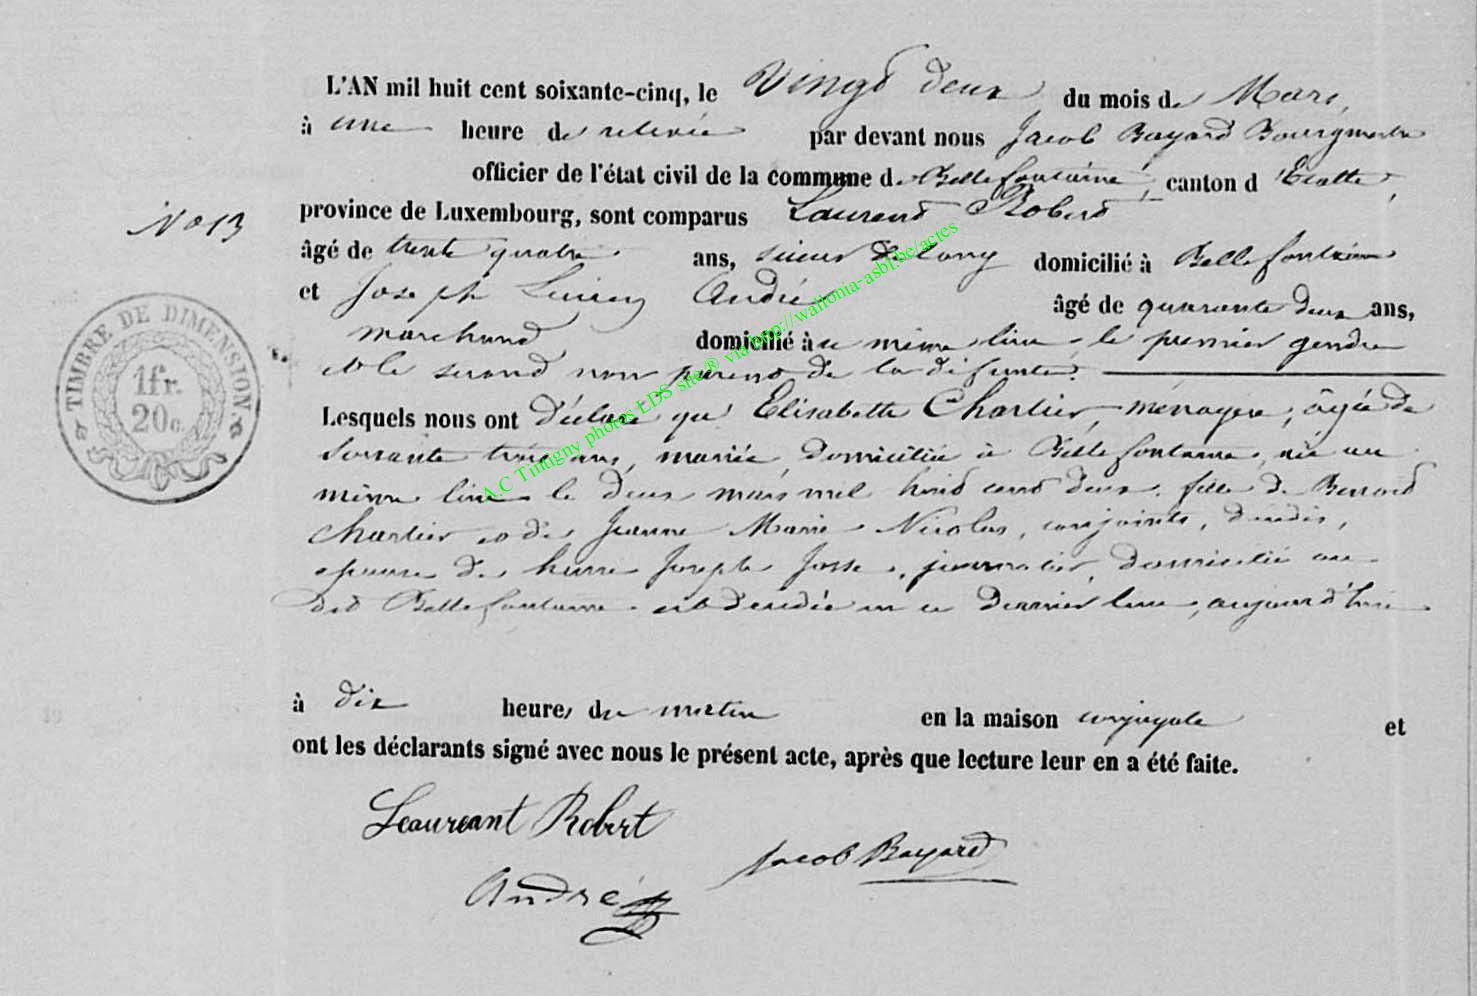 L'AN mil huit cent soixante-cinq, le Vingt deux du mois de Mars,
à une heure de relevée par devant nous Jacob Bayard Bourgmestre
officier de l'état civil de la commune de Bellefontaine, canton d'Etalle,
N° 13
province de Luxembourg, sont comparus Laurent Robert
âgé de trente quatre ans, scieur de long domicilié à Bellefontaine
et Joseph André âgé de quarante deux ans,
marchand domicilié au même lieu, le premier gendre
et le second non parent de la défunte.
TIMBRE DE DIMENSION.
1fr.
20c.
Lesquels nous ont déclaré qu'Elisabette Charlier, ménagère, âgée de
soixante trois ans, mariée, domiciliée à Bellefontaine, née au
même lieu le deux mars mil huit cent deux, fille de Bernard
Charlier et de Jeanne Marie Nicolas, conjoints, décédés,
épouse de Joseph Josse, journalier, domicilié au
dit Bellefontaine est décédée en ce dernier lieu, aujourd'hui
à dix heures du matin en la maison conjugale et
ont les déclarants signé avec nous le présent acte, après que lecture leur en a été faite.
Leaureant Robert
Jacob Bayard
André
A.C Tintigny photos EDS site ® via http://wallonia-asbl.be/actes